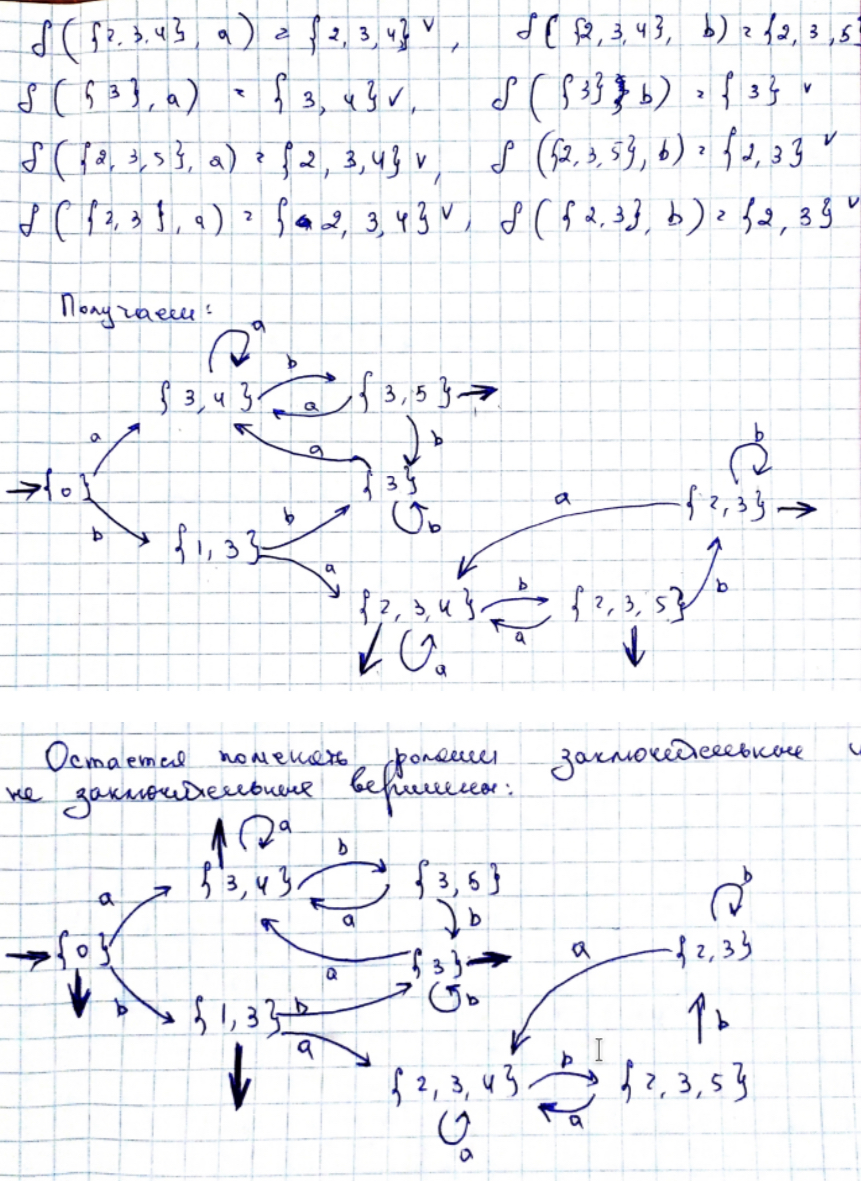 δ( {2,3,4}, a) = {2,3,4} ✓, δ( {2,3,4}, b) = {2,3,5}
δ( {3}, a) = {3,4} ✓, δ( {3} b) = {3} ✓
δ( {2,3,5}, a) = {2,3,4} ✓, δ({2,3,5}, b) = {2,3} ✓
δ( {2,3}, a) = {2,3,4} ✓, δ( {2,3}, b) = {2,3} ✓
Получаем:
a
b
{3,4} {3,5}
a
a b
a
b
{0} {3} {2,3}
b a
b b
{1,3}
a
{2,3,4} b {2,3,5} b
a
a
Остается поменять ролями заключительные и
не заключительные вершины:
a
b
{3,4} {3,5}
a b
a b
{0} {3} {2,3}
a a
b b b
{1,3} b
a
{2,3,4} b {2,3,5}
a
a